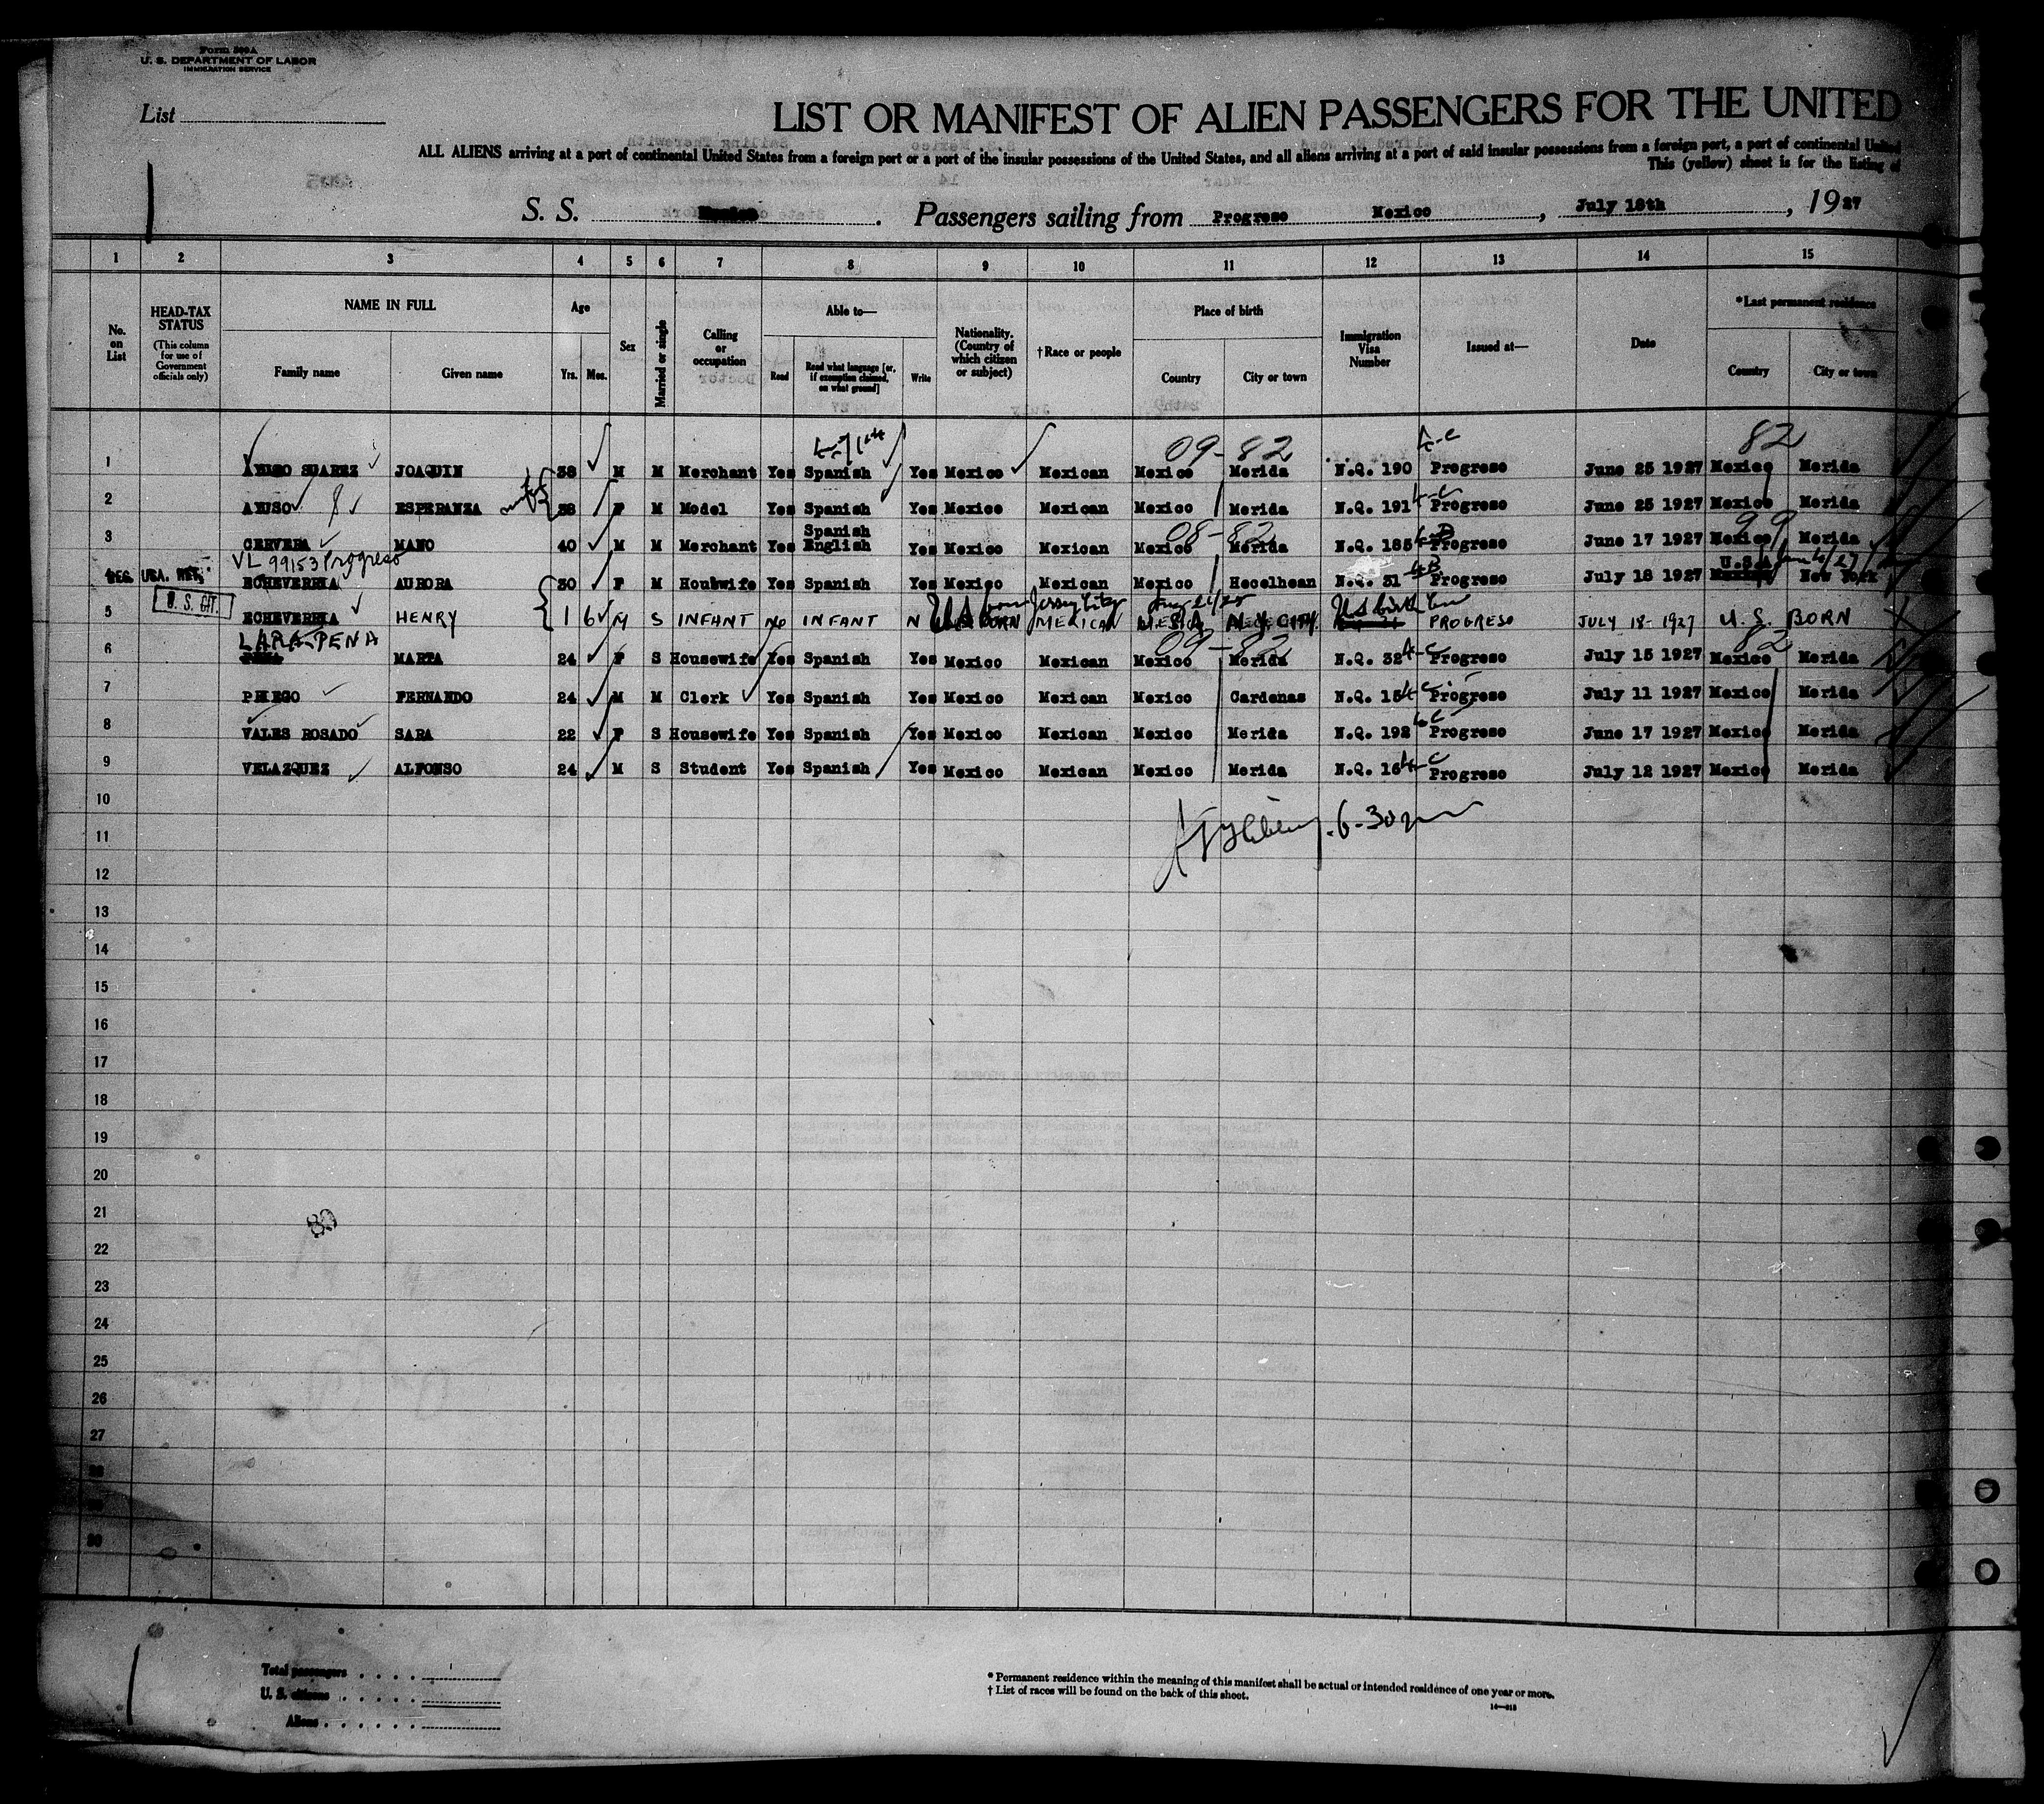 Form 500A
U. S. DEPARTMENT OF LABOR
IMMIGRATION SERVICE
List
LIST OR MANIFEST OF ALIEN PASSENGERS FOR THE UNITED
ALL ALIENS arriving at a port of continental United States from a foreign port or a port of the insular possessions of the United States, and all aliens arriving at a port of said insular possessions from a foreign port, a port of continental United
This (yellow) sheet is for the listing of
S. S. Mexico. Passengers sailing from Progreso Mexico, July 18th, 1927
1 2 3 4 5 6 7 8 9 10 11 12 13 14 15
No. on List
HEAD-TAX STATUS
(This column for use of Government officials only)
NAME IN FULL
Family name Given name
Age
Yrs. Mos.
Sex
Married or single
Calling or occupation
Able to—
Read
Read what language [or, if exemption claimed, on what ground]
Write
Nationality. (Country of which citizen or subject)
†Race or people
Place of birth
Country City or town
Immigration Visa Number
Issued at—
Date
*Last permanent residence
Country City or town
09-82 4-C 82
1 SUAREZ JOAQUIN 38 M M Merchant Yes Spanish Yes Mexico Mexican Mexico Merida N.Q. 190 Progreso June 25 1927 Mexico Merida
2 AYUSO ESPERANZA 38 F M Model Yes Spanish Yes Mexico Mexican Mexico Merida N.Q. 191 4-C Progreso June 25 1927 Mexico Merida
Spanish 08-82 99
3 CERVERA MANO 40 M M Merchant Yes English Yes Mexico Mexican Mexico Merida N.Q. 185 Progreso June 17 1927 Mexico Merida
VL 99153 Progreso U.S.A
4 ECHEVERRIA AURORA 30 F M Houswife Yes Spanish Yes Mexico Mexican Mexico Hecelhean N.Q. 31 4B Progreso July 18 1927 Mexico New York
U. S. CIT.
Jersey City US birth
5 ECHEVERRIA HENRY 1 6 M S INFANT No INFANT N BORN MEXICAN U.S.A N.Y. CITY. PROGRESO JULY 18-1927 U. S. BORN
LARA-PENA 09-82 82
6 PENA MARTA 24 F S Housewife Yes Spanish Yes Mexico Mexican Mexico Merida N.Q. 32 4-C Progreso July 15 1927 Mexico Merida
7 PRIEGO FERNANDO 24 M M Clerk Yes Spanish Yes Mexico Mexican Mexico Cardenas N.Q. 15 4-C Progreso July 11 1927 Mexico Merida
8 VALES ROSADO SARA 22 F S Housewife Yes Spanish Yes Mexico Mexican Mexico Merida N.Q. 192 4-C Progreso June 17 1927 Mexico Merida
9 VELAZQUEZ ALFONSO 24 M S Student Yes Spanish Yes Mexico Mexican Mexico Merida N.Q. 16 4-C Progreso July 12 1927 Mexico Merida
10
6-30 pm
11
12
13
14
15
16
17
18
19
20
21
80
22
23
24
25
26
27
28
29
30
Total passengers
U. S. citizens
Aliens
* Permanent residence within the meaning of this manifest shall be actual or intended residence of one year or more.
† List of races will be found on the back of this sheet.